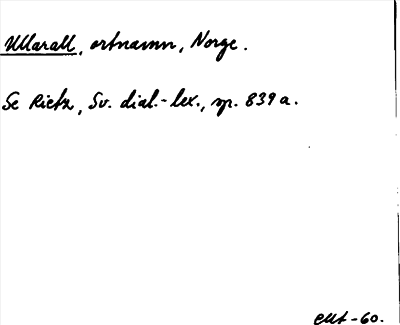 Ullarall, ortnamn, Norge.
Se Rietz, Sv. dial.-lex., sp. 839 a.
-60.